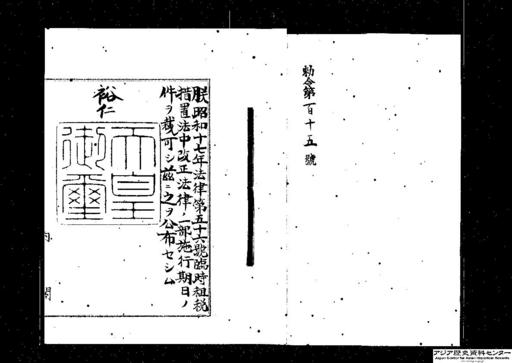 勅令第百十五號
朕昭和十七年法律第五十六號臨時租税
措置法中改正法律ノ一部施行期日ノ
件ヲ裁可シ茲ニ之ヲ公布セシム
裕仁
天皇
御璽
内閣
アジア歴史資料センター
Japan Center for Asian Historical Records